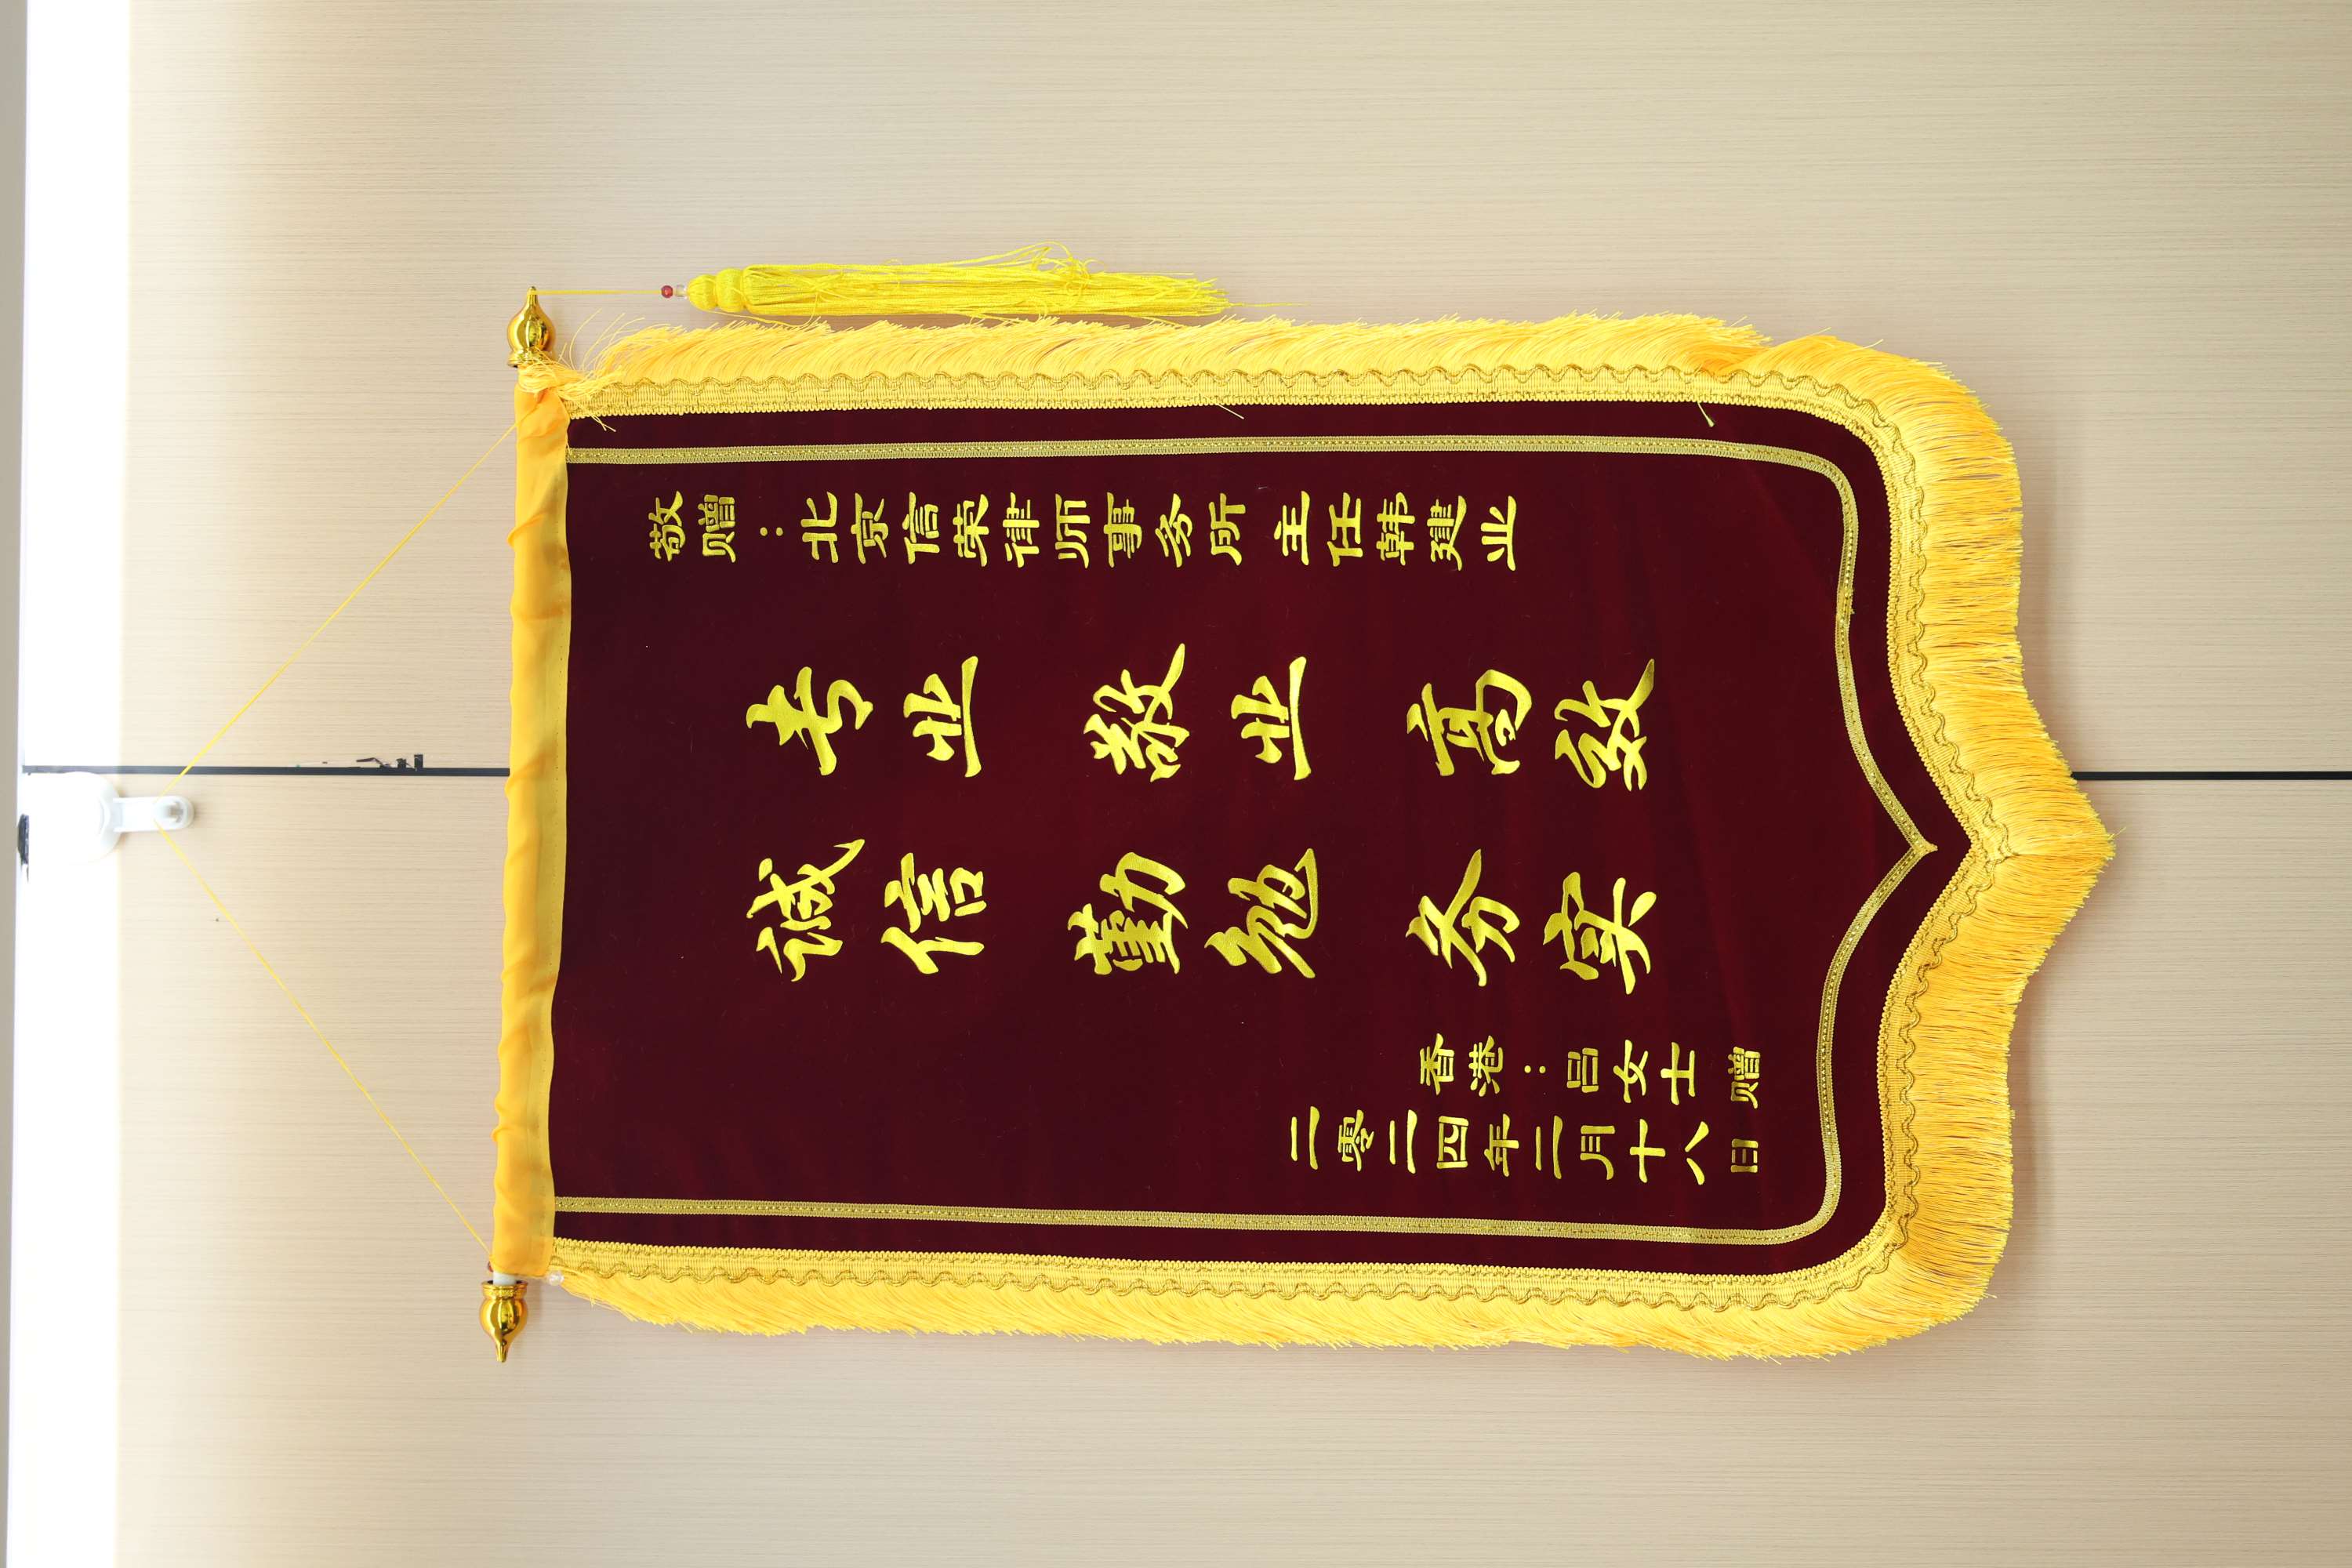 敬赠：北京信荣律师事务所 主任韩建业
专业 敬业 高效
诚信 勤勉 务实
香港：吕女士 赠
二零二四年二月十八日